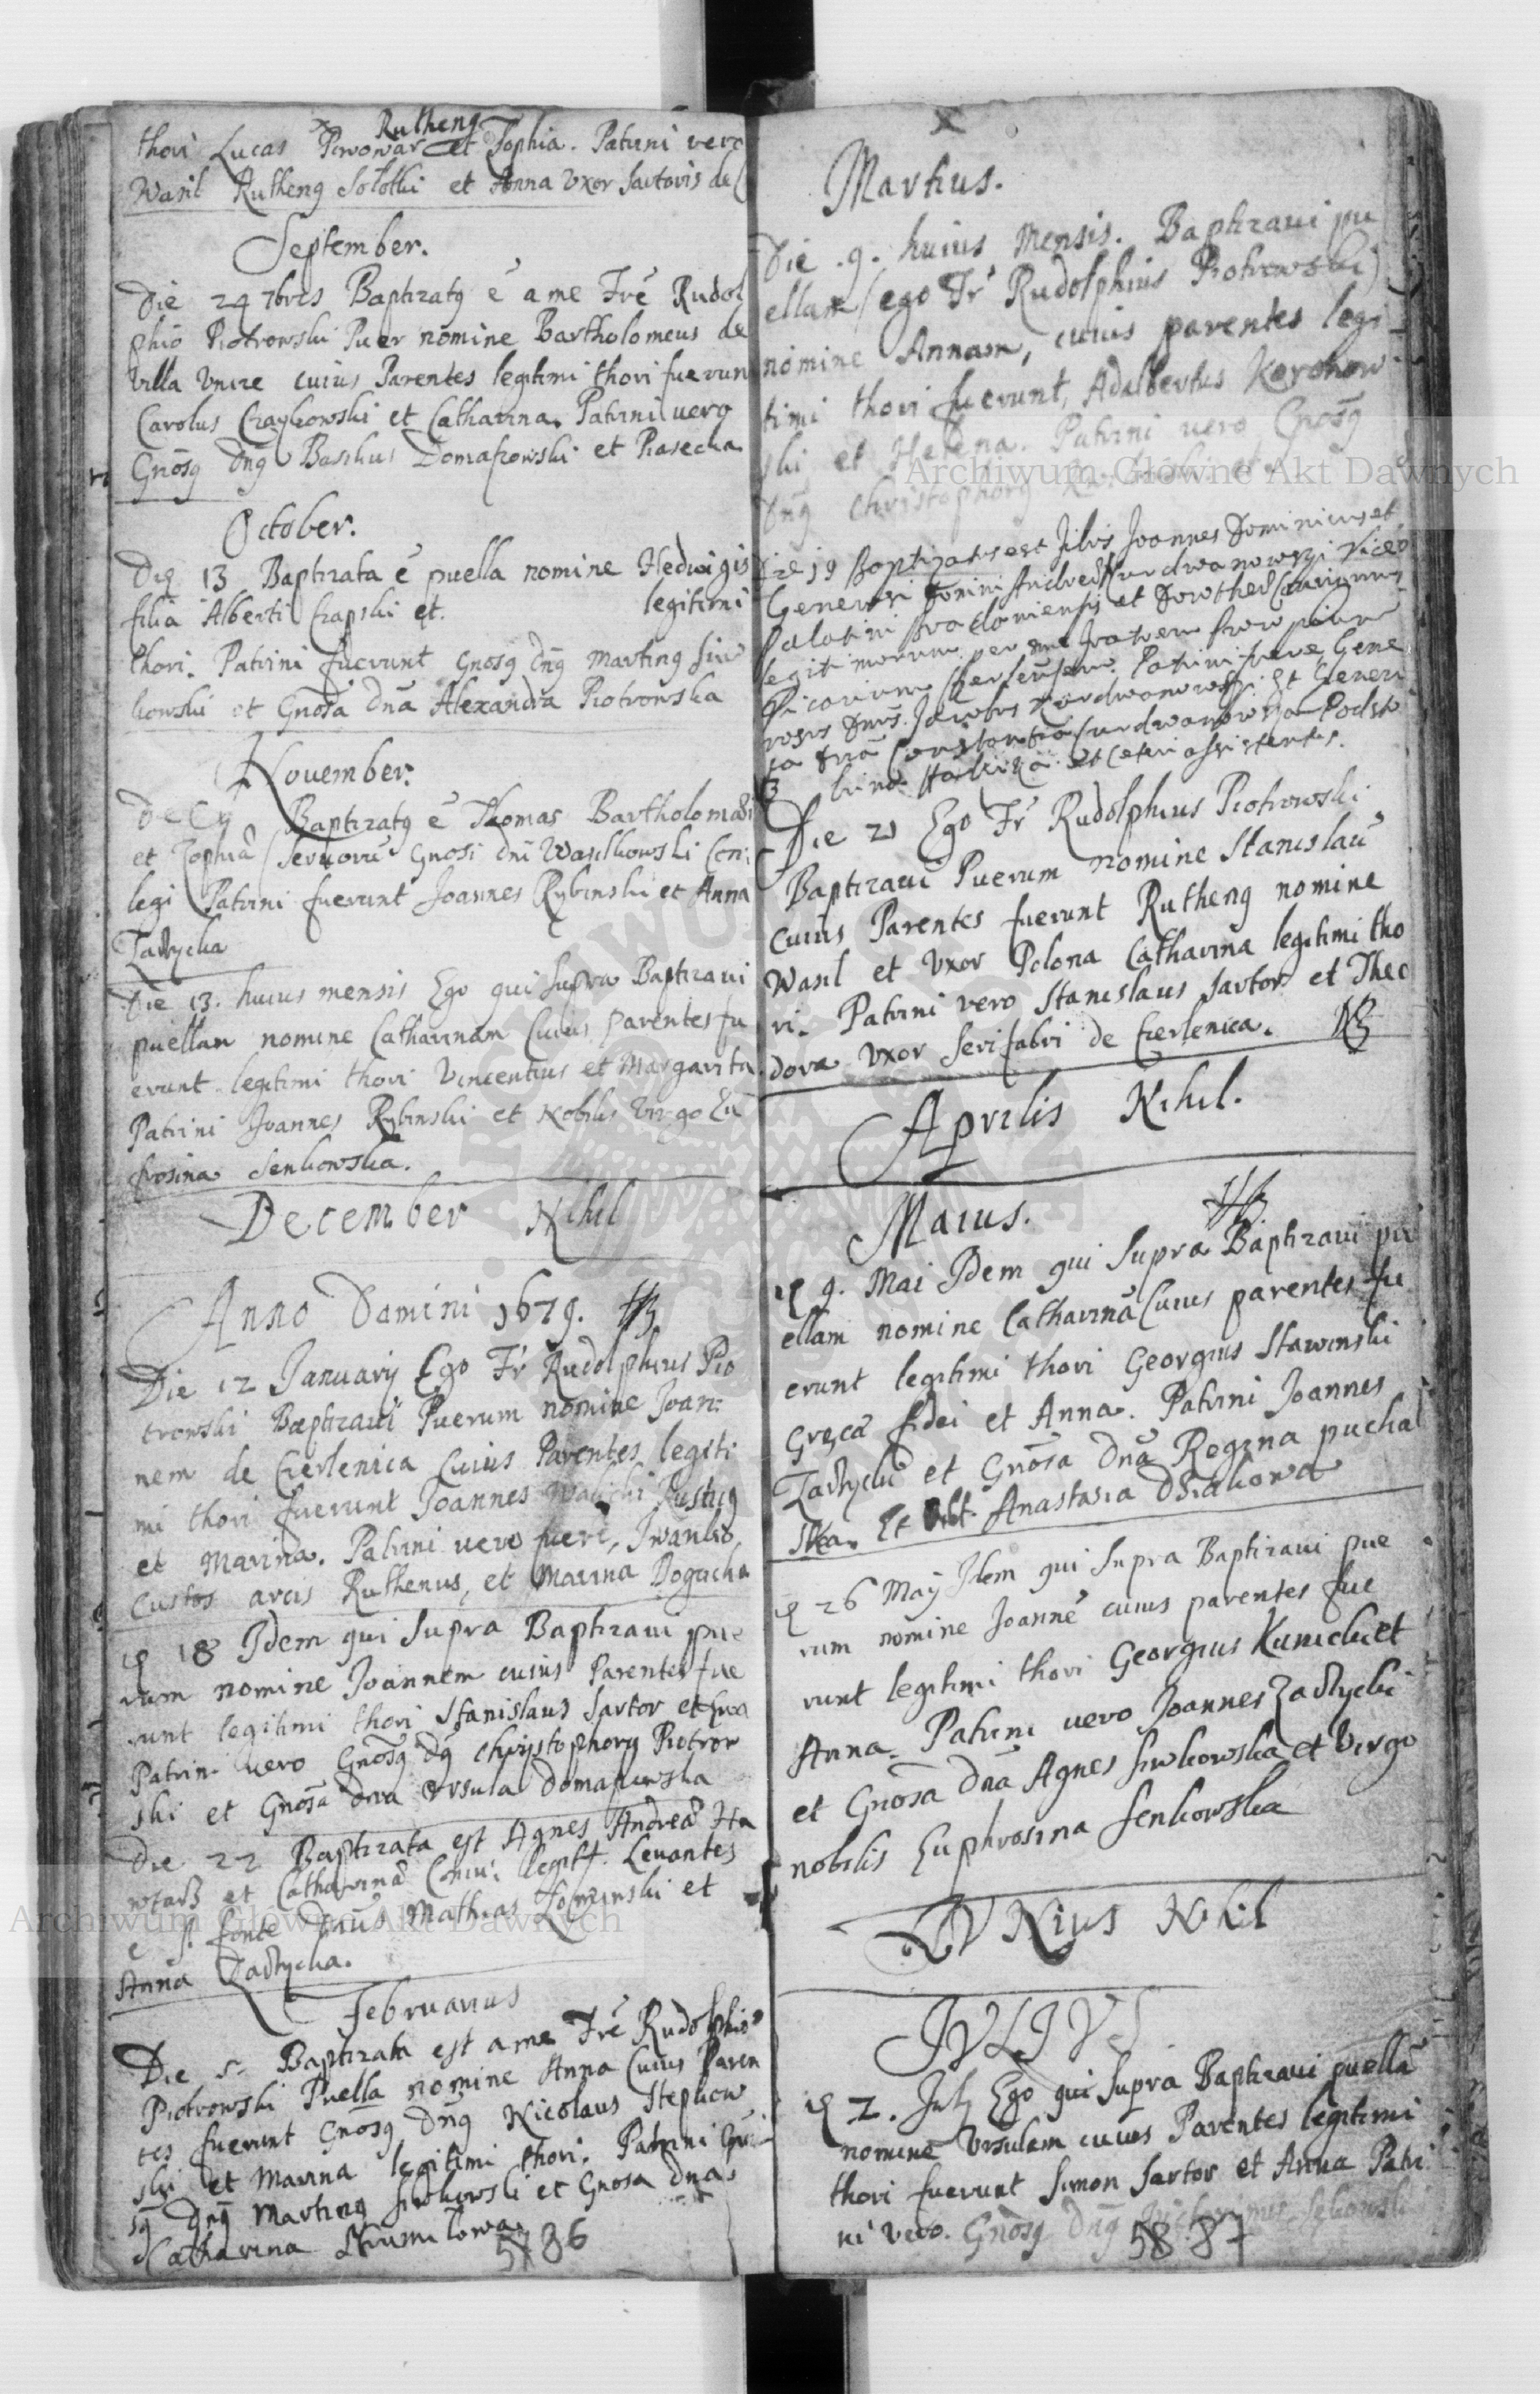 Rutheng
thori Lucas Piwowar et Sophia. Patrini vero
Wasil Rutheng Solotki et Anna Uxor Sartoris de
September.
Die 24 7bris Baptizatg ē a me Frē Rudol
phio Piotrowski Puer nomine Bartholomeus de
villa cuius Parentes legitimi thori fuerun
Carolus Czaykowski et Catharina. Patrini vero
Gnōsg Dng Domaszowski et Piasecka
October.
Die 13 Baptizata ē puella nomine Hedwigis
filia Alberti Czapski et. legitimi
thori. Patrini fuerunt Gnosg Dng Marting Siw
kowski et Gnōsa Dnā Alexandra Piotrowska
November.
Baptizatg ē Thomas Bartholomæi
et Sophiæ Gnosi Dni Wasilkowski
legi Patrini fuerunt Joannes Rybinski et Anna
Zadlycka
Die 13. huius mensis Ego qui Supra Baptizaui
puellam nomine Catharinam Cuius parentes fu
erunt legitimi thori Vincentius et Margarita
Patrini Joannes Rybinski et Nobilis Virgo Eu
frosina Senkowska.
December Nihil
Anno Domini 1679.
Die 12 January Ego Fr Rudolphius Pio
trowski Baptizaui Puerum nomine Joan
nem de Czerlenica Cuius Parentes legiti
mi thori fuerunt Joannes Rustig
et Marina. Patrini vero fuerē, Iwanko
Custos arcis Ruthenus, et Marina Bogucka
18 Idem qui Supra Baptizaui pue
rum nomine Joannem cuius Parentes fue
runt legitimi thori Stanislaus Sartor et Eua
Patrini vero Gnōsg Dg Christophorg Piotrow
ski et Gnōsa Dna Vrsula Domaszewska
Die 22 Baptizata est Agnes Andreæ Ha
et Catharinæ legitt. Leuantes
e S. fonte Dnūs Mathias et
Anna Zadlycka.
Februarius
Die 5. Baptizata est a me Frē Rudolphio
Piotrowski Puella nomine Anna Cuius Paren
tes fuerunt Gnosg Dng Nicolaus Stepkow
ski et Marina legitimi thori. Patrini Gnō
sg Dng Marting Siwkowski et Gnosa Dna
Catharina Strumilowa.
5786
Martius.
Die .9. huius Mensis. Baptizaui pu
ellam (ego Fr Rudolphius Piotrowski)
nomine Annam, cuius parentes legi
timi thori fuerunt, Adalbertus
ski et Helena. Patrini vero Gnōsg
Dng Christophorg
Die 19 Baptizatus est filius Joannes Dominicus et
Generosi Domini Andreæ Kurdwanowszi Vice
Palatini et Dorotheæ Coniugum
legitimorum per me fratrem
Vicarium Patrini fuere Gene
rosus Dnūs. Jacobus Kurdwanowszi. Et Genero
sa Dnā Constantia Kurdwanowska Podsto
lina et Ceteri assistentes.
Die 21 Ego Fr Rudolphius Piotrowski
Baptizaui Puerum nomine Stanislaū
cuius Parentes fuerunt Rutheng nomine
Wasil et Uxor Polona Catharina legitimi tho
ri. Patrini vero Stanislaus Sartor et Theo
dora Uxor Serifabri de Czerlenica.
Aprilis Nihil.
Maius.
9. Mai Idem qui Supra Baptizaui pu
ellam nomine Catharinā Cuius parentes fu
erunt legitimi thori Georgius Stawinski
Gręcæ fidei et Anna. Patrini Joannes
Zadlycki et Gnōsa Dnā Regina puchal
ska. Et Anastasia Dziakowa
26 May Idem qui Supra Baptizaui pue
rum nomine Joannē cuius parentes fue
runt legitimi thori Georgius Kunicki et
Anna. Patrini vero Joannes Zadlycki
et Gnosa Dnā Agnes Siwkowska et Virgo
nobilis Euphrosina Senkowska
IVNius Nihil
IVLIVS
2. July Ego qui Supra Baptizaui puellā
nomine Vrsulam cuius Parentes legitimi
thori fuerunt Simon Sartor et Anna Patri
ni vero. Gnōsg Dng
5887
Archiwum Główne Akt Dawnych
Archiwum Główne Akt Dawnych